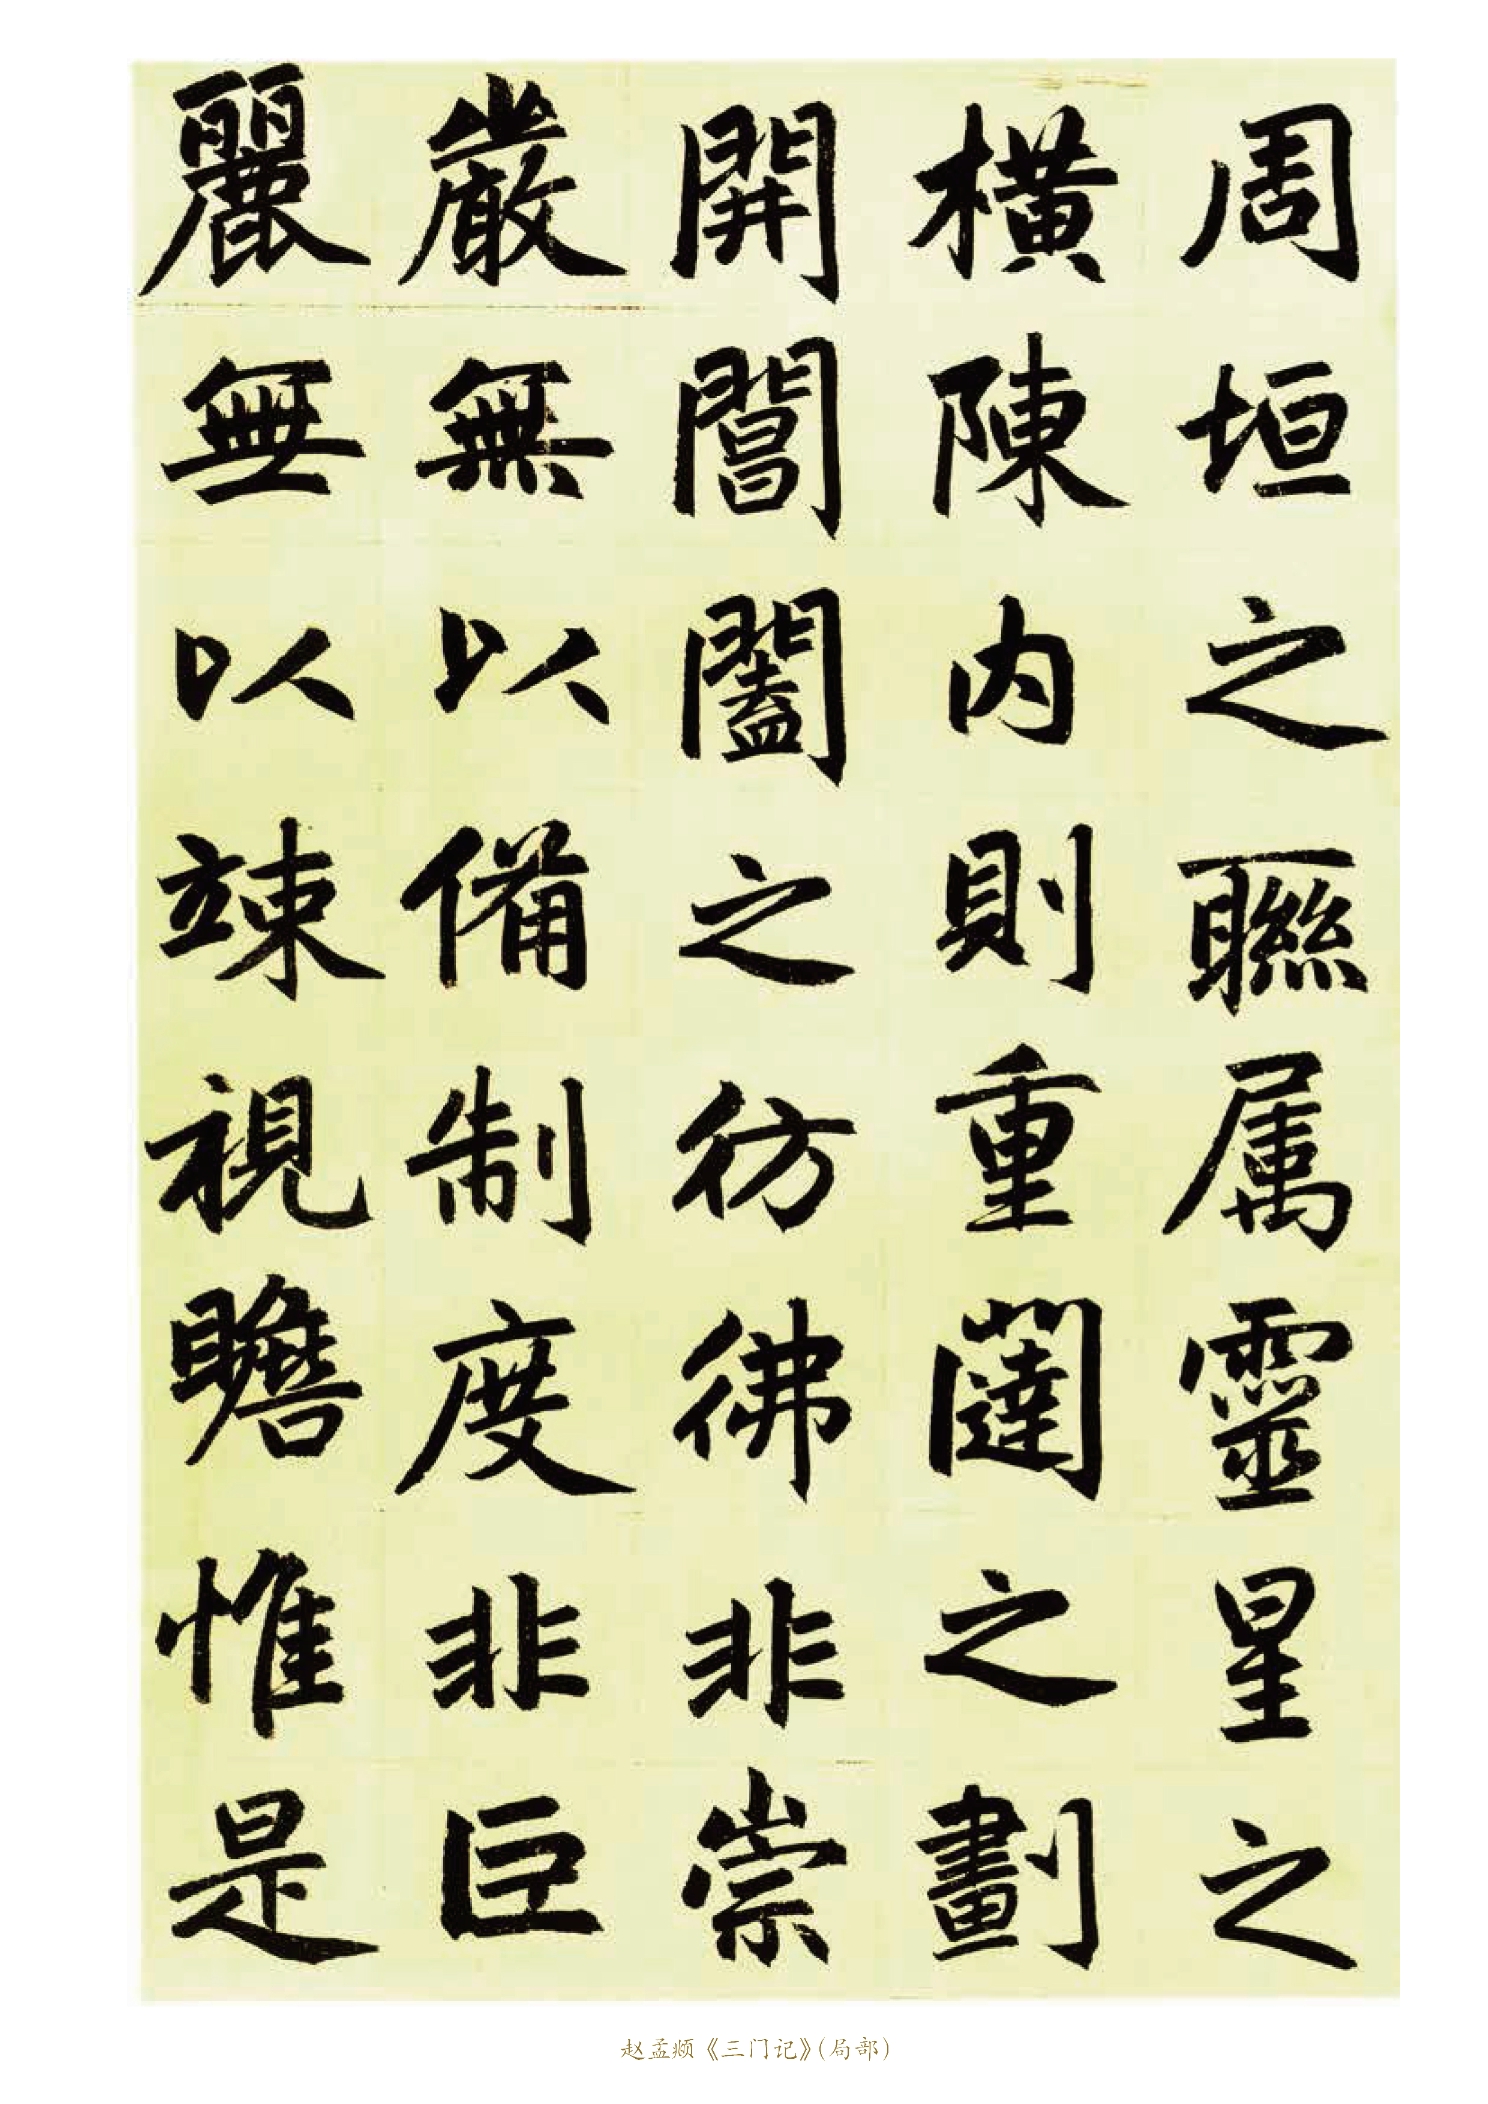 周垣之聯属靈星之
橫陳内則重闥之劃
開閶闔之彷彿非崇
嚴無以備制度非巨
麗無以竦視瞻惟是
赵孟頫《三门记》(局部)